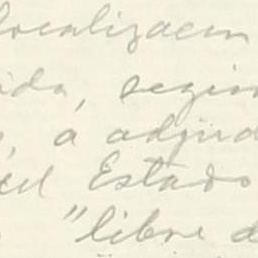 localizacin
ida, segin
, a adjud
el Estado
"libre d